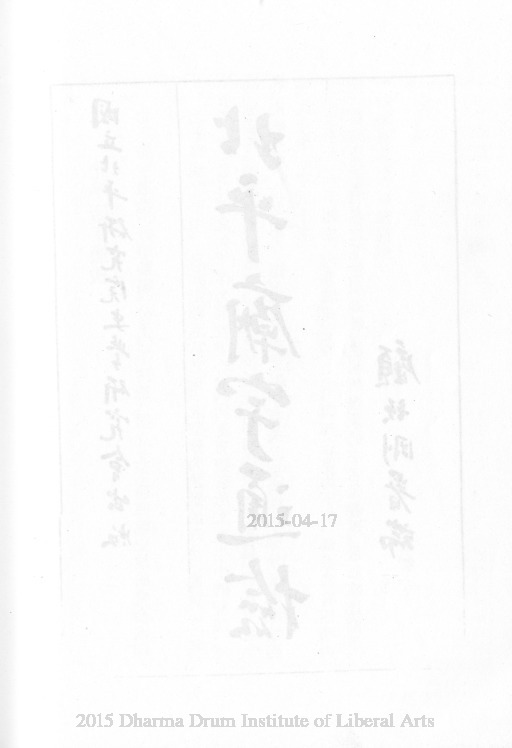 北平廟宇通檢
國立北平研究院史學研究會出版
顧頡剛署耑
2015-04-17
2015 Dharma Drum Institute of Liberal Arts